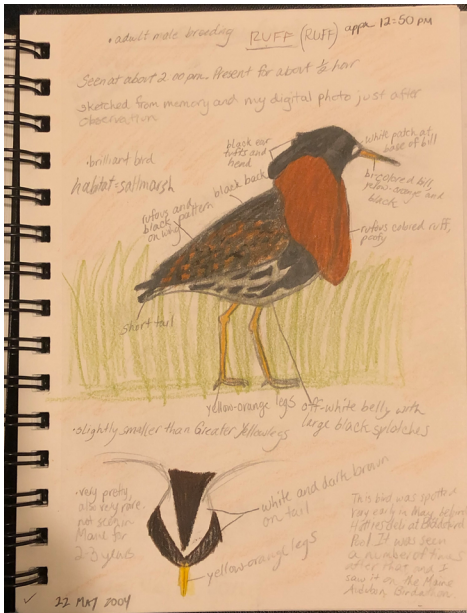 • adult male breeding RUFF (RUFF) appx 12:50 PM
Seen at about 2:00 pm. Present for about ½ hour
sketched from memory and my digital photo just after
observation
• brilliant bird
habitat = saltmarsh
black ear
tufts and
head
white patch at
base of bill
bicolored bill,
yellow-orange and
black
black back
rufous and
black pattern
on wing
rufous colored ruff,
poofy
short tail
yellow-orange legs
off-white belly with
large black splotches
• slightly smaller than Greater Yellowlegs
• very pretty,
also very rare-
not seen in
Maine for
2-3 years
white and dark brown
on tail
yellow-orange legs
This bird was spotted
very early in May before
at
It was seen
a number of times
after that and I
saw it on the Maine
Audubon
✓ 22 MAY 2004